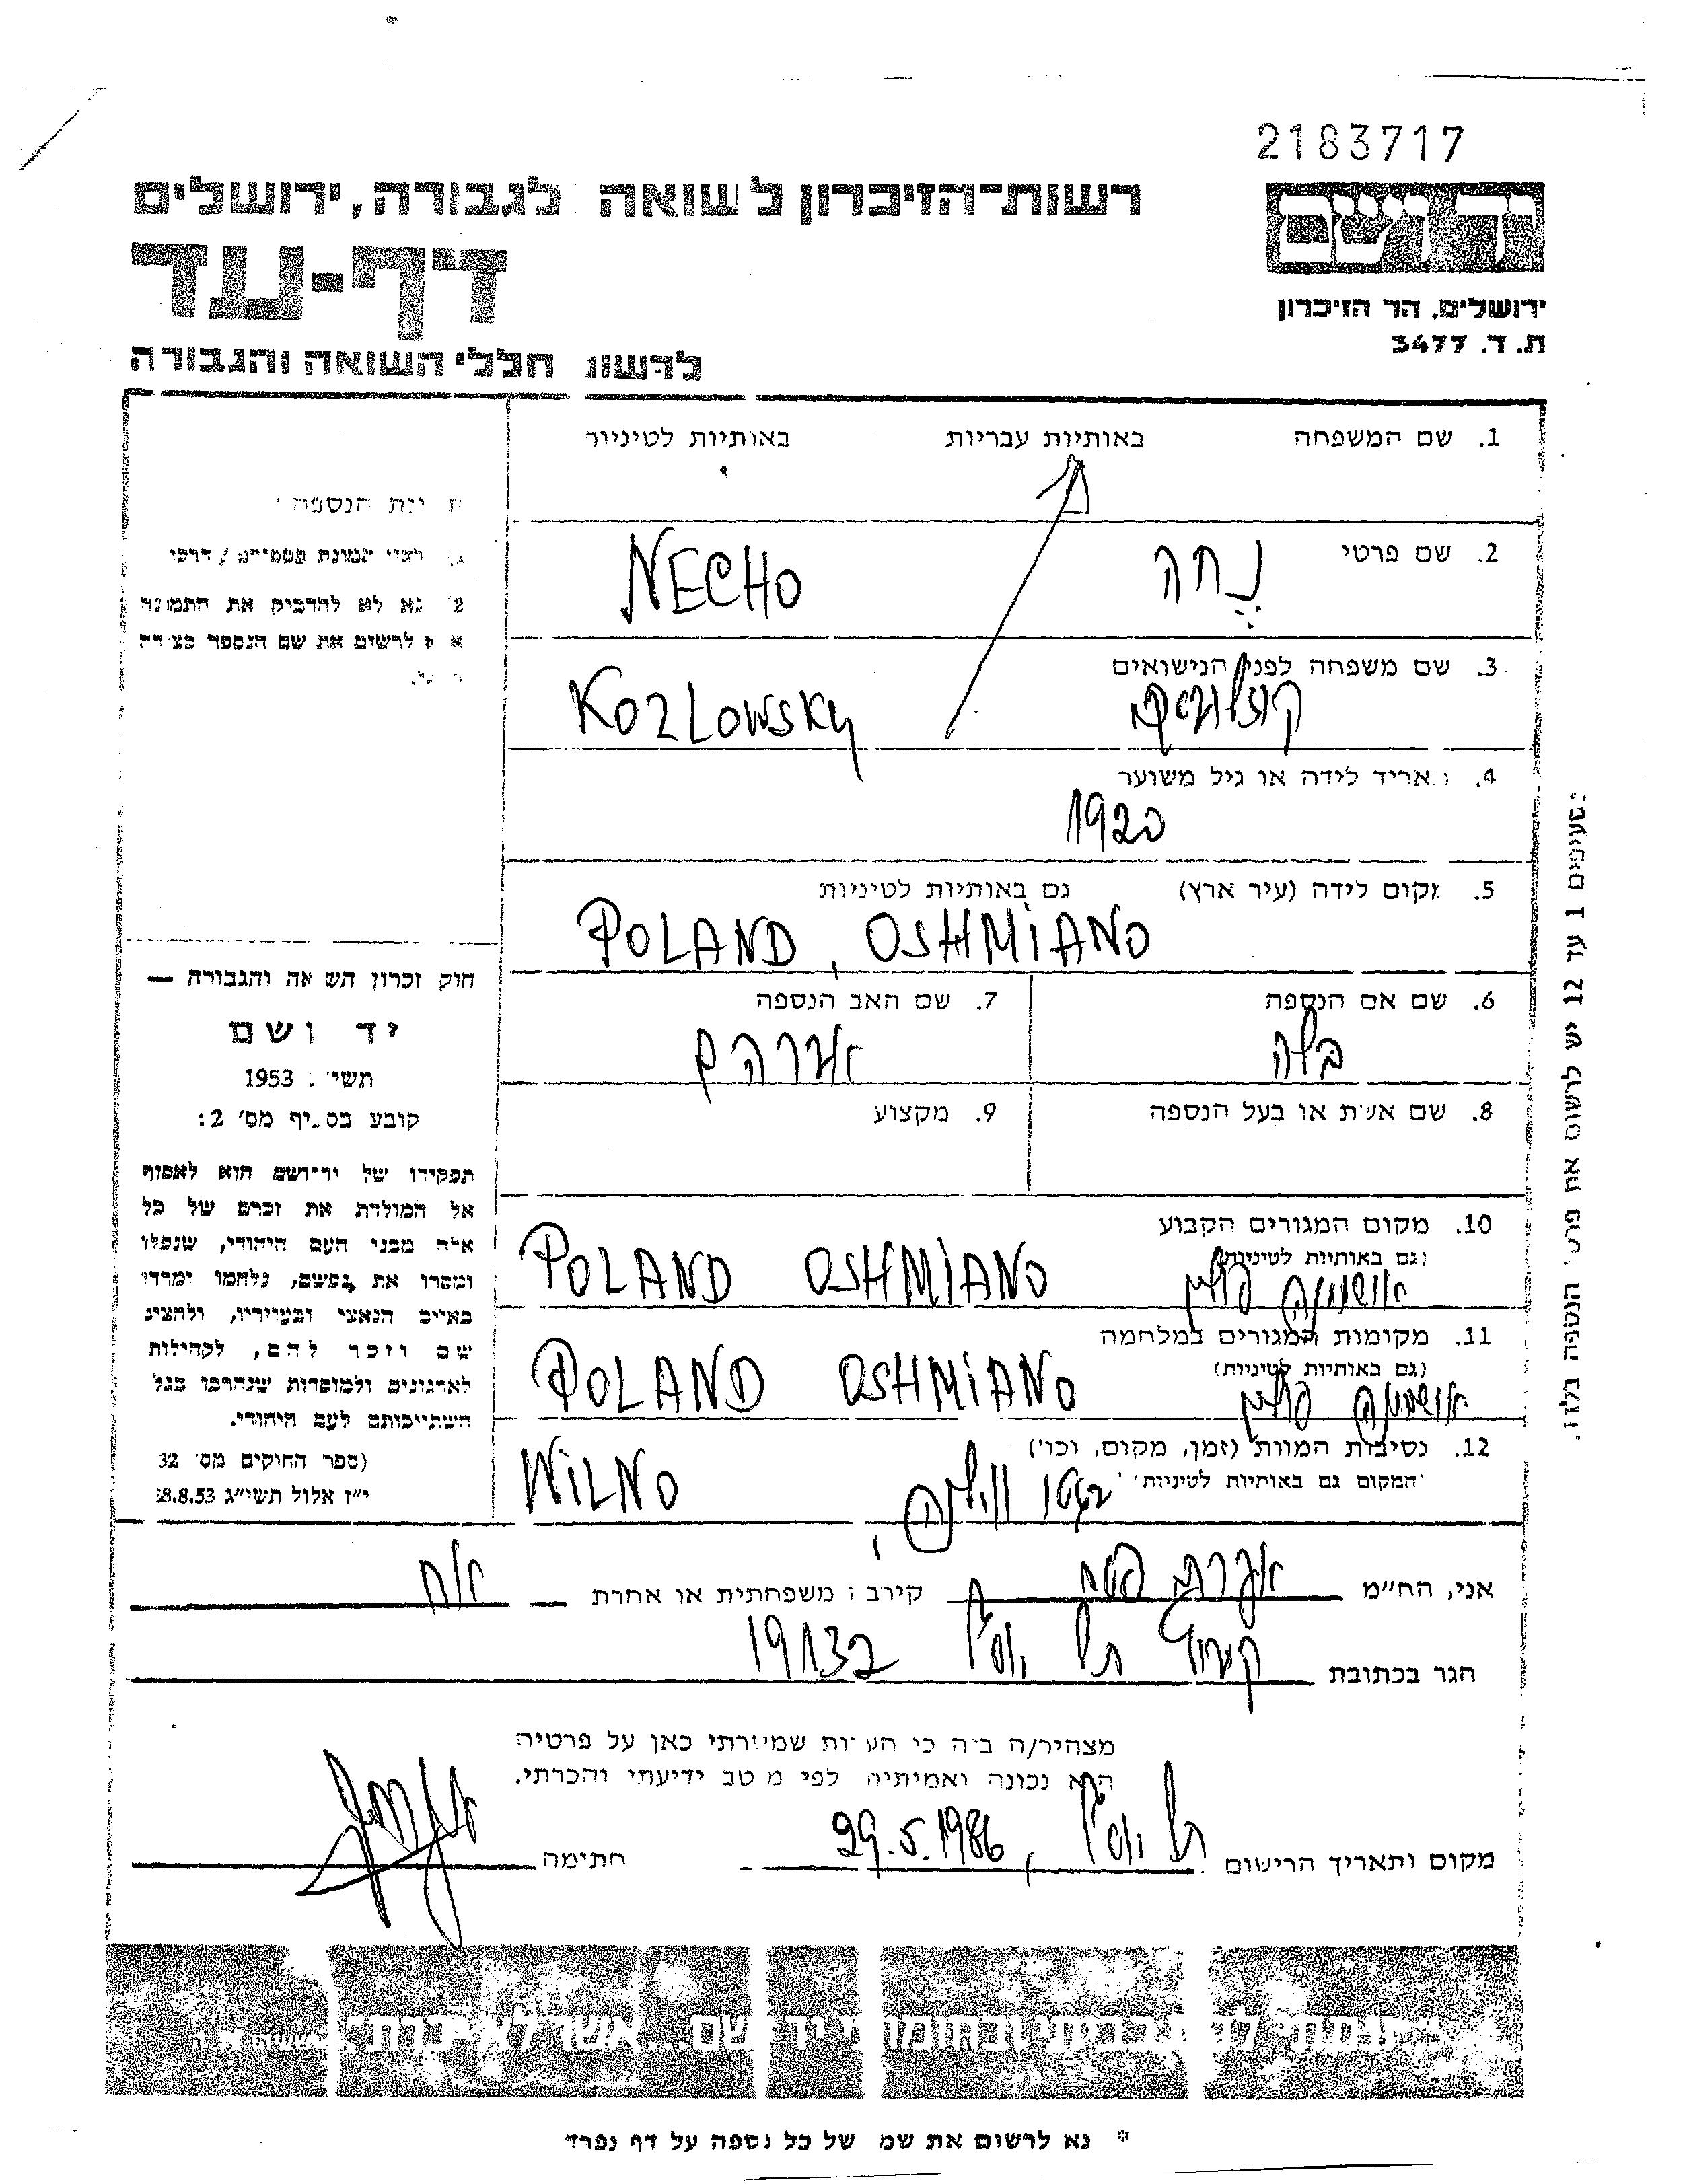 2183717
רשות־הזיכרון לשואה ולגבורה, ירושלים
יד ושם
דף-עד
ירושלים, הר הזיכרון
ת. ד. 3477
לרשום חללי השואה והגבורה
1. שם המשפחה באותיות עבריות באותיות לטיניות
2. שם פרטי
נֶחָה NECHO
3. שם משפחה לפני הנישואים
קוזלובסקי KOZLOWSKY
4. תאריך לידה או גיל משוער
1920
5. מקום לידה (עיר ארץ) גם באותיות לטיניות
POLAND, OSHMiANO
6. שם אם הנספה
בלה
7. שם האב הנספה
אברהם
8. שם אשת או בעל הנספה
9. מקצוע
10. מקום המגורים הקבוע
(גם באותיות לטיניות)
אושמינה פולין POLAND OSHMiANO
11. מקומות המגורים במלחמה
(גם באותיות לטיניות)
אושמינה פולין POLAND OSHMiANO
12. נסיבות המוות (זמן, מקום, וכו')
(המקום גם באותיות לטיניות)
בגטו ווילנה, WiLNO
תמונת הנספה
רצוי תמונת פספורט / דרכון
נא לא להדביק את התמונה
לרשום את שם הנספה בצידה
חוק זכרון השואה והגבורה —
יד ושם
תשי״ג 1953
קובע בסעיף מס׳ 2:
תפקידו של יד־ושם הוא לאסוף
אל המולדת את זכרם של כל
אלה מבני העם היהודי, שנפלו
ומסרו את נפשם, נלחמו ומרדו
באויב הנאצי ובעוזריו, ולהציב
שם וזכר להם, לקהילות
לארגונים ולמוסדות שנחרבו בגלל
השתייכותם לעם היהודי.
(ספר החוקים מס׳ 132
י״ז אלול תשי״ג 28.8.53
סעיפים 1 עד 12 יש לרשום את פרטי הנספה בלבד.
אני, הח״מ אברהם קירבה משפחתית או אחרת אח
הגר בכתובת קיבוץ תל יוסף 19132
מצהיר/ה בזה כי העדות שמסרתי כאן על פרטיה
היא נכונה ואמיתית לפי מיטב ידיעתי והכרתי.
מקום ותאריך הרישום תל יוסף, 29.5.1986 חתימה
ונתתי להם בביתי ובחומותי יד ושם...אשר לא יכרת
* נא לרשום את שמו של כל נספה על דף נפרד